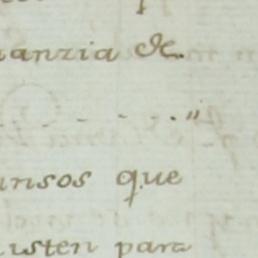 anzia &c.
. . . . . "
ansos que
isten para